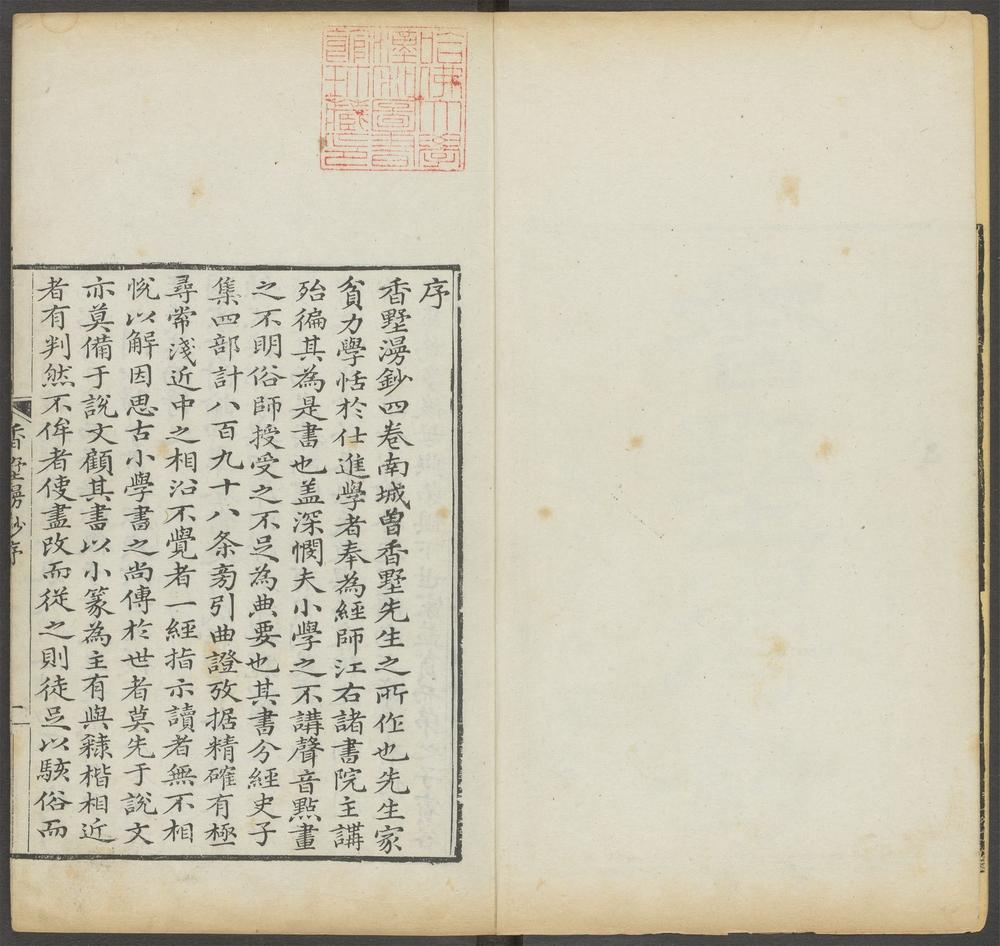 哈佛大學
漢和圖書
館珍藏印
序
香墅漫鈔四卷南城曾香墅先生之所作也先生家
貧力學恬於仕進學者奉為經師江右諸書院主講
殆徧其為是書也盖深憫夫小學之不講聲音點畫
之不明俗師授受之不足為典要也其書分經史子
集四部計八百九十八条旁引曲證攷据精確有極
尋常淺近中之相沿不覺者一經指示讀者無不相
悅以解因思古小學書之尚傳於世者莫先于說文
亦莫備于說文顧其書以小篆為主有與隸楷相近
者有判然不侔者使盡改而從之則徒足以駭俗而
香墅漫鈔序
一